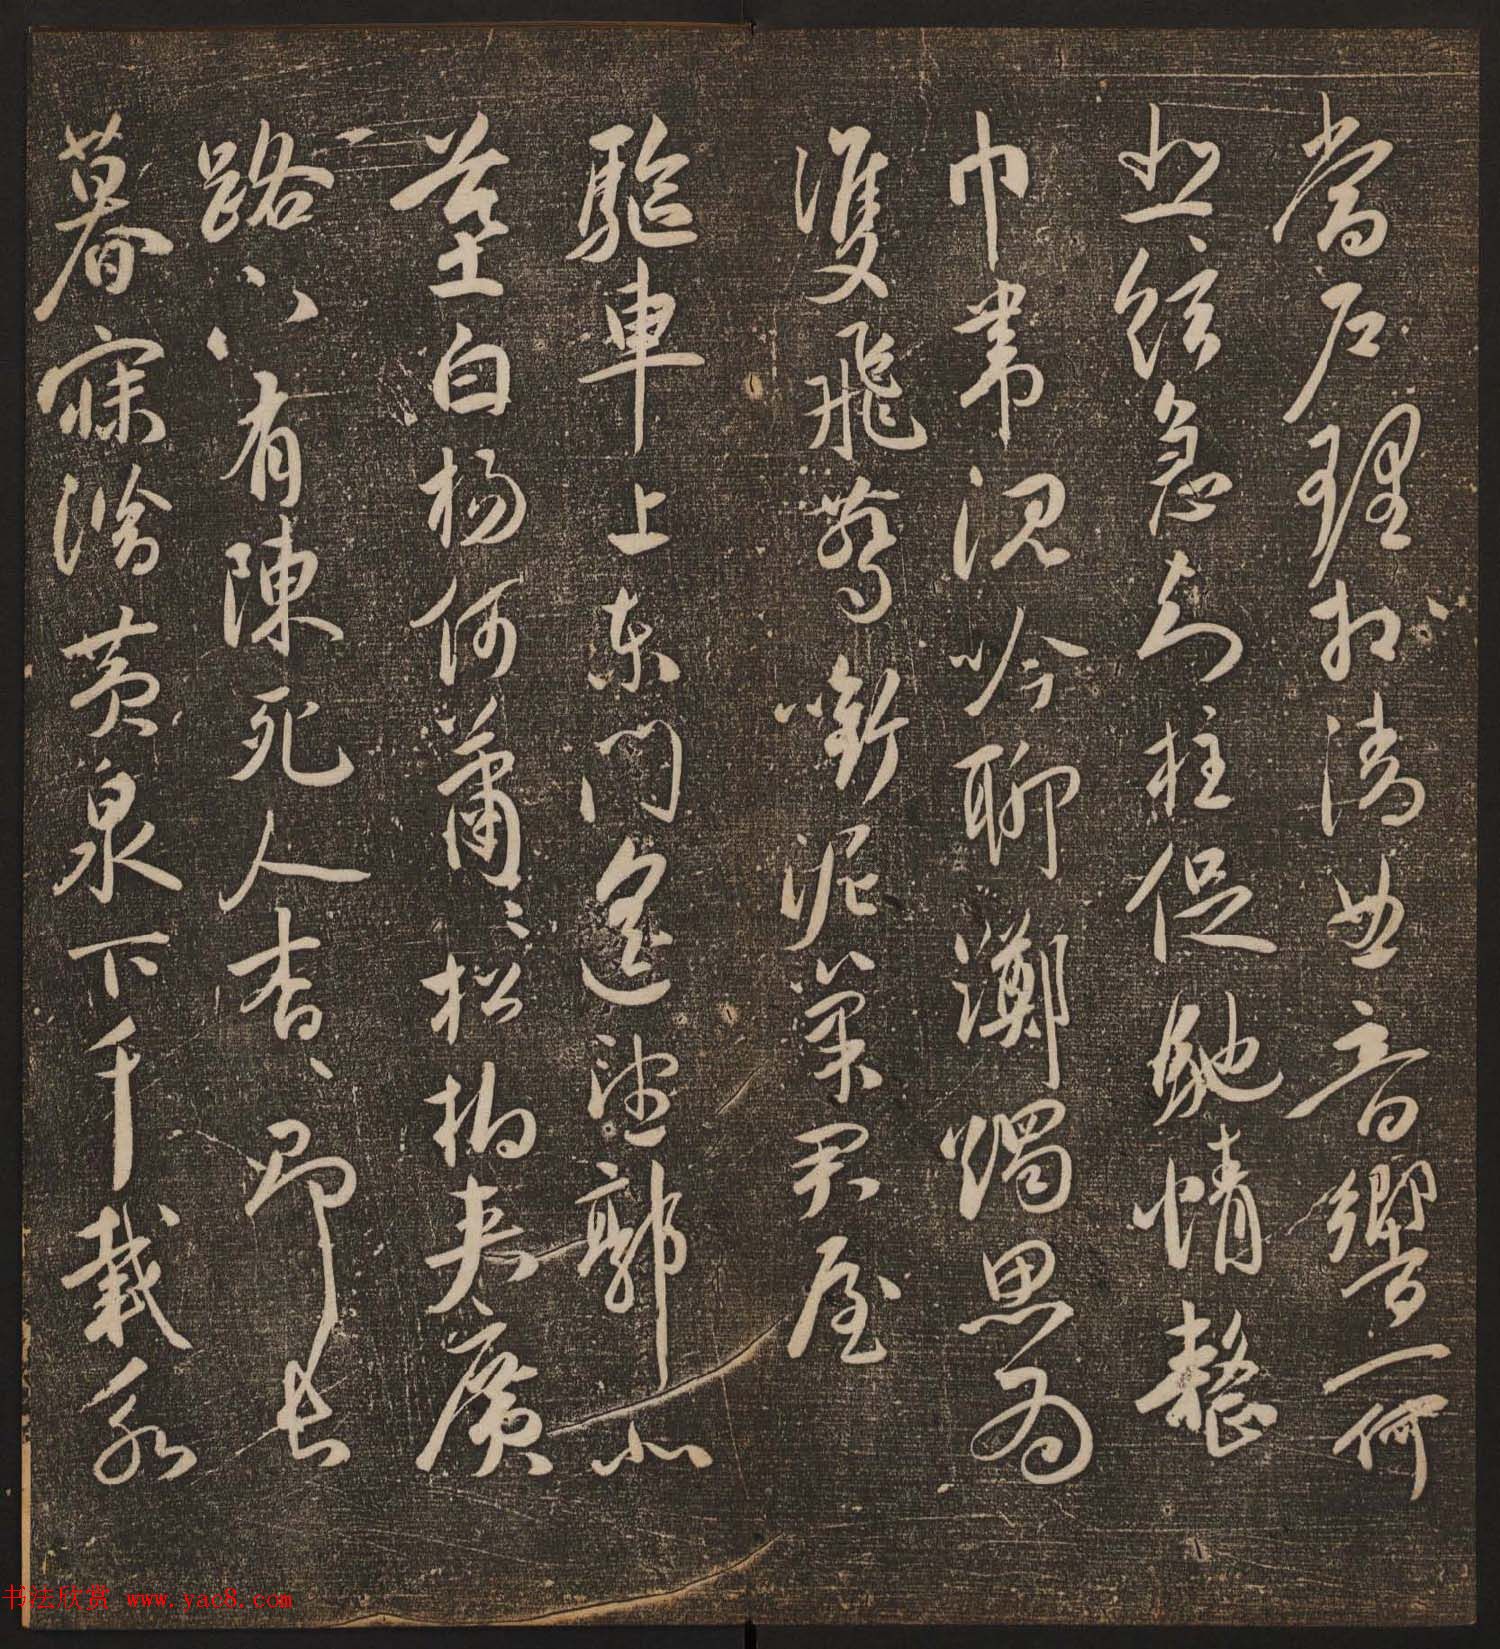 當戶理清曲音響一何
悲弦急知柱促馳情整
巾帶沉吟聊躑躅思為
雙飛鷰銜泥巢君屋
驅車上東門遙望郭北
墓白楊何蕭〻松柏夾廣
路下有陳死人杳〻即長
暮寐潛黃泉下千載永
书法欣赏 www.yac8.com